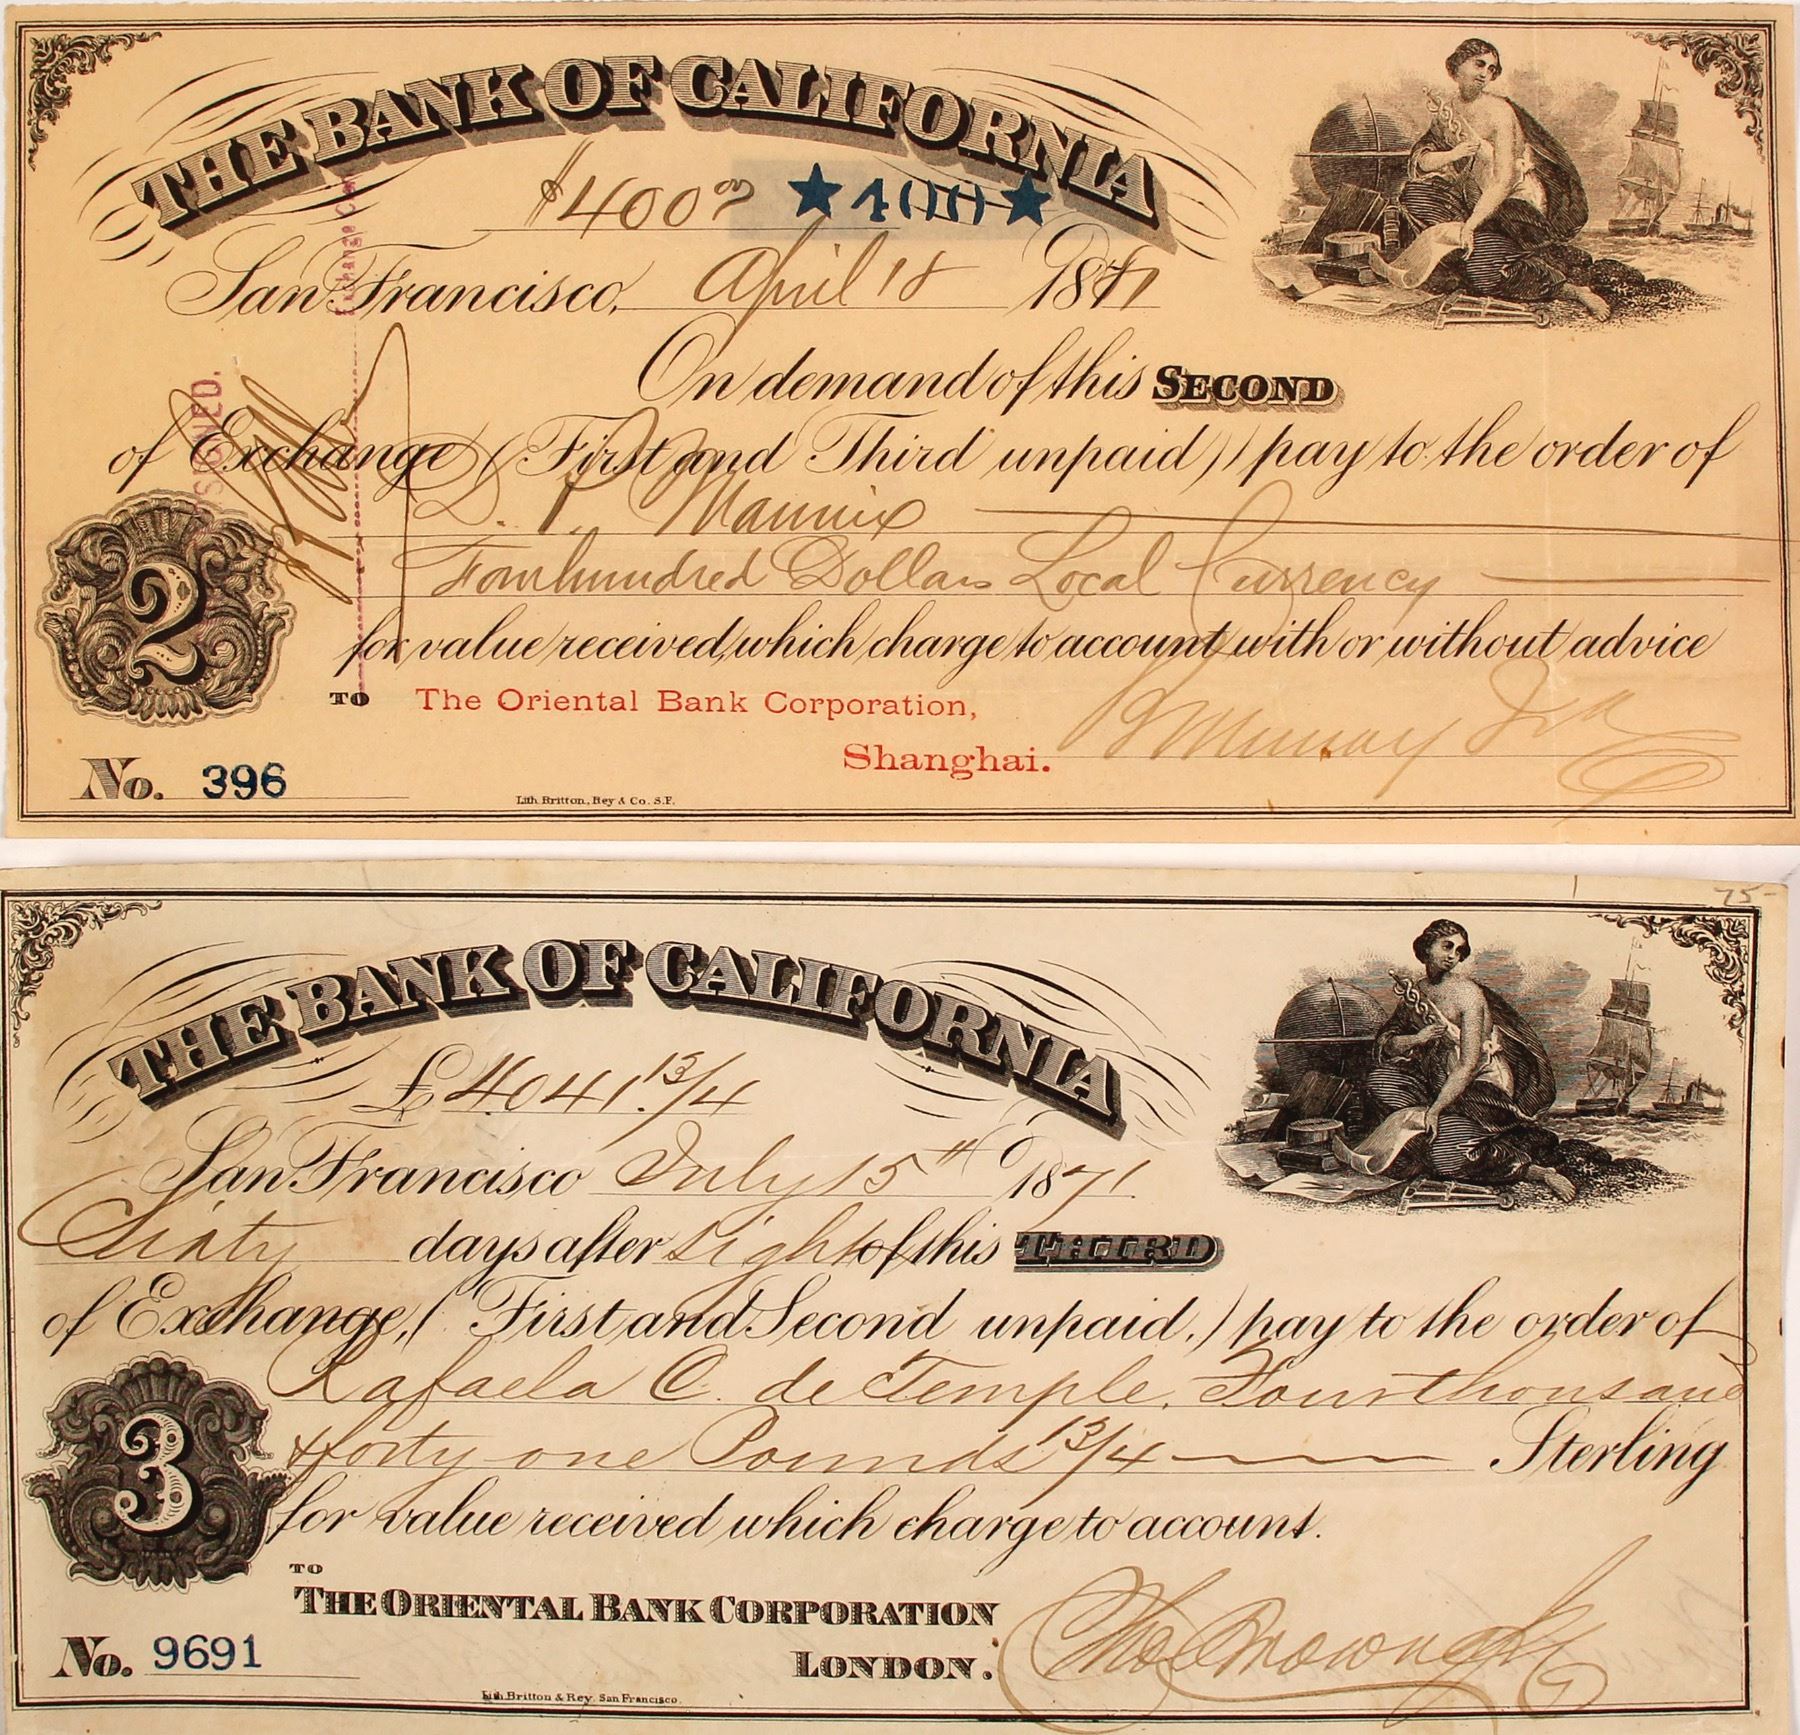 THE BANK OF CALIFORNIA
$400 00/ ★400★
San Francisco, April 18 1871
On demand of this SECOND
of Exchange (First and Third unpaid) pay to the order of
D. P. Mannix
Four hundred Dollars Local Currency
for value received, which charge to account with or without advice
TO The Oriental Bank Corporation,
Shanghai.
2
No. 396
Lith. Britton, Rey & Co. S.F.
75-
THE BANK OF CALIFORNIA
£4041.13/4
San Francisco July 15th 1871.
Sixty days after sight of this THIRD
of Exchange, (First and Second unpaid,) pay to the order of
Rafaela C. de Temple, Four thousand
& forty one Pounds 13/4 Sterling
3
for value received which charge to account.
TO
THE ORIENTAL BANK CORPORATION
LONDON.
Thos Brown
No. 9691
Lith. Britton & Rey. San Francisco.